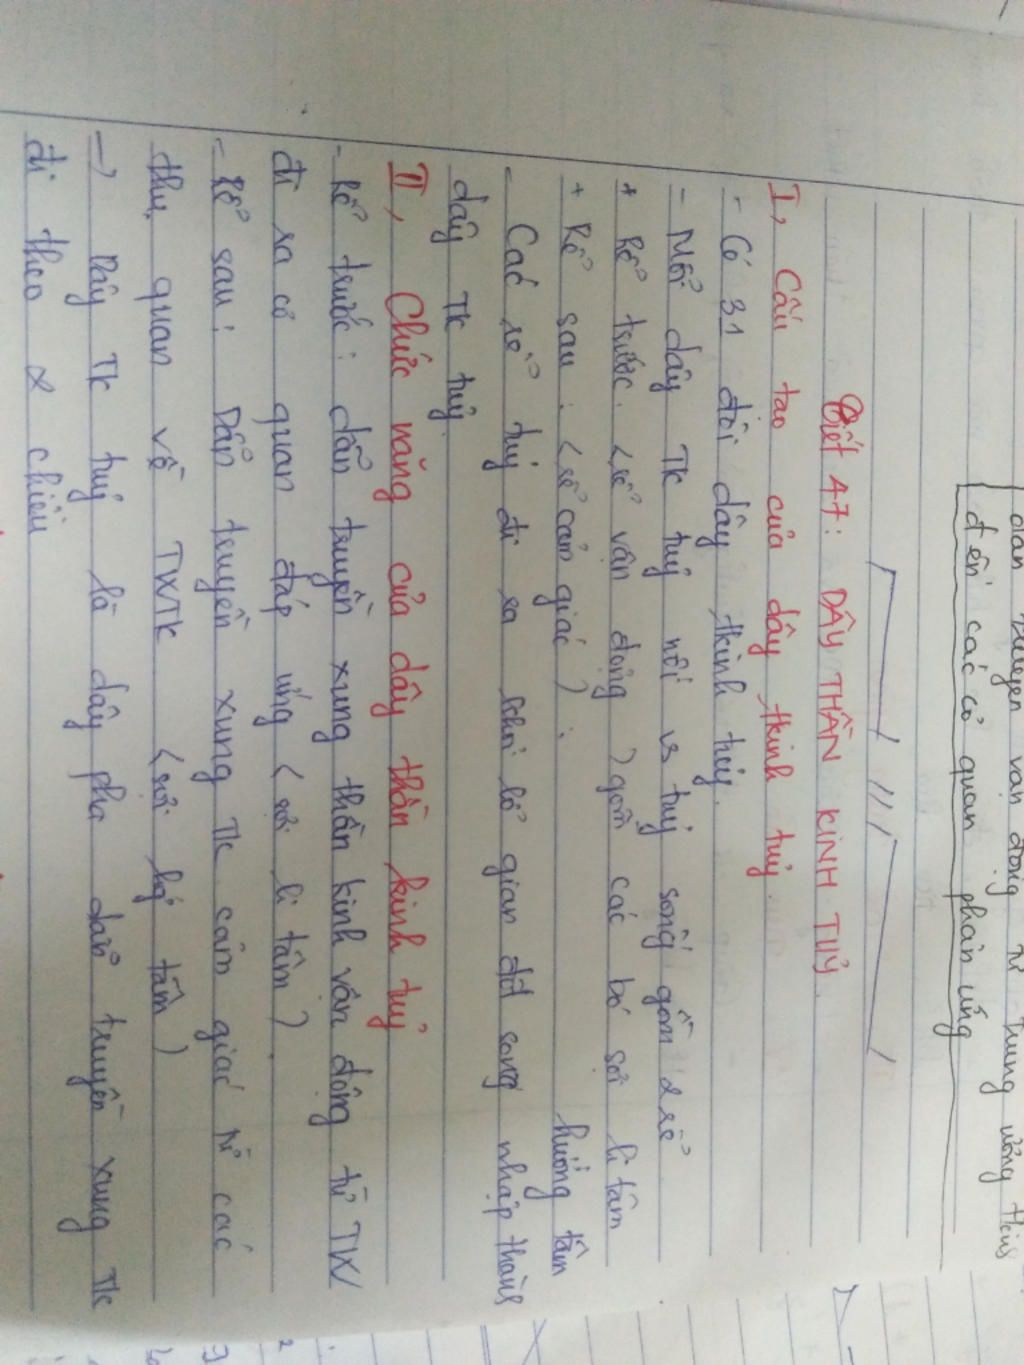 dẫn truyền vận động từ trung ương thần
đến các cơ quan phản ứng
Tiết 47: DÂY THẦN KINH TUỶ.
I, Cấu tạo của dây tkinh tuỷ.
- Có 31 đôi dây tkinh tuỷ.
- Mỗi dây TK tuỷ nối vs tuỷ sống gồm 2 rễ
+ Rễ trước. (rễ vận động) gồm các bó sợi li tâm
+ Rễ sau. (rễ cảm giác). hướng tâm
- Các rễ tuỷ đi ra khỏi lỗ gian đốt song nhập thành
dây TK tuỷ.
II, Chức năng của dây thần kinh tuỷ
- Rễ trước: dẫn truyền xung thần kinh vận động từ TW
đi ra cơ quan đáp ứng (sợi li tâm).
- Rễ sau: Dẫn truyền xung TK cảm giác từ các
thụ quan về TWTK (sợi hg tâm)
→ Dây TK tuỷ là dây pha dẫn truyền xung TK
đi theo 2 chiều